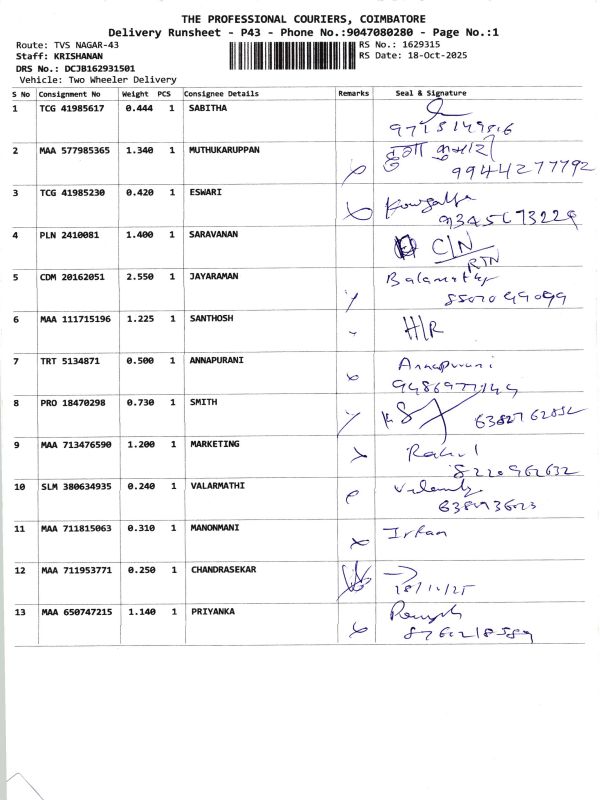 THE PROFESSIONAL COURIERS, COIMBATORE
Delivery Runsheet - P43 - Phone No.:9047080280 - Page No.:1
Route: TVS NAGAR-43 RS No.: 1629315
Staff: KRISHANAN RS Date: 18-Oct-2025
DRS No.: DCJB162931501
Vehicle: Two Wheeler Delivery
S No Consignment No Weight PCS Consignee Details Remarks Seal & Signature
1 TCG 41985617 0.444 1 SABITHA
2 MAA 577985365 1.340 1 MUTHUKARUPPAN
9944277792
3 TCG 41985230 0.420 1 ESWARI
4 PLN 2410081 1.400 1 SARAVANAN C/N
RTN
5 CDM 20162051 2.550 1 JAYARAMAN
6 MAA 111715196 1.225 1 SANTHOSH H/R
7 TRT 5134871 0.500 1 ANNAPURANI Annapurani
8 PRO 18470298 0.730 1 SMITH
9 MAA 713476590 1.200 1 MARKETING Rahul
8220962632
10 SLM 380634935 0.240 1 VALARMATHI
11 MAA 711815063 0.310 1 MANONMANI Irfan
12 MAA 711953771 0.250 1 CHANDRASEKAR
13 MAA 650747215 1.140 1 PRIYANKA